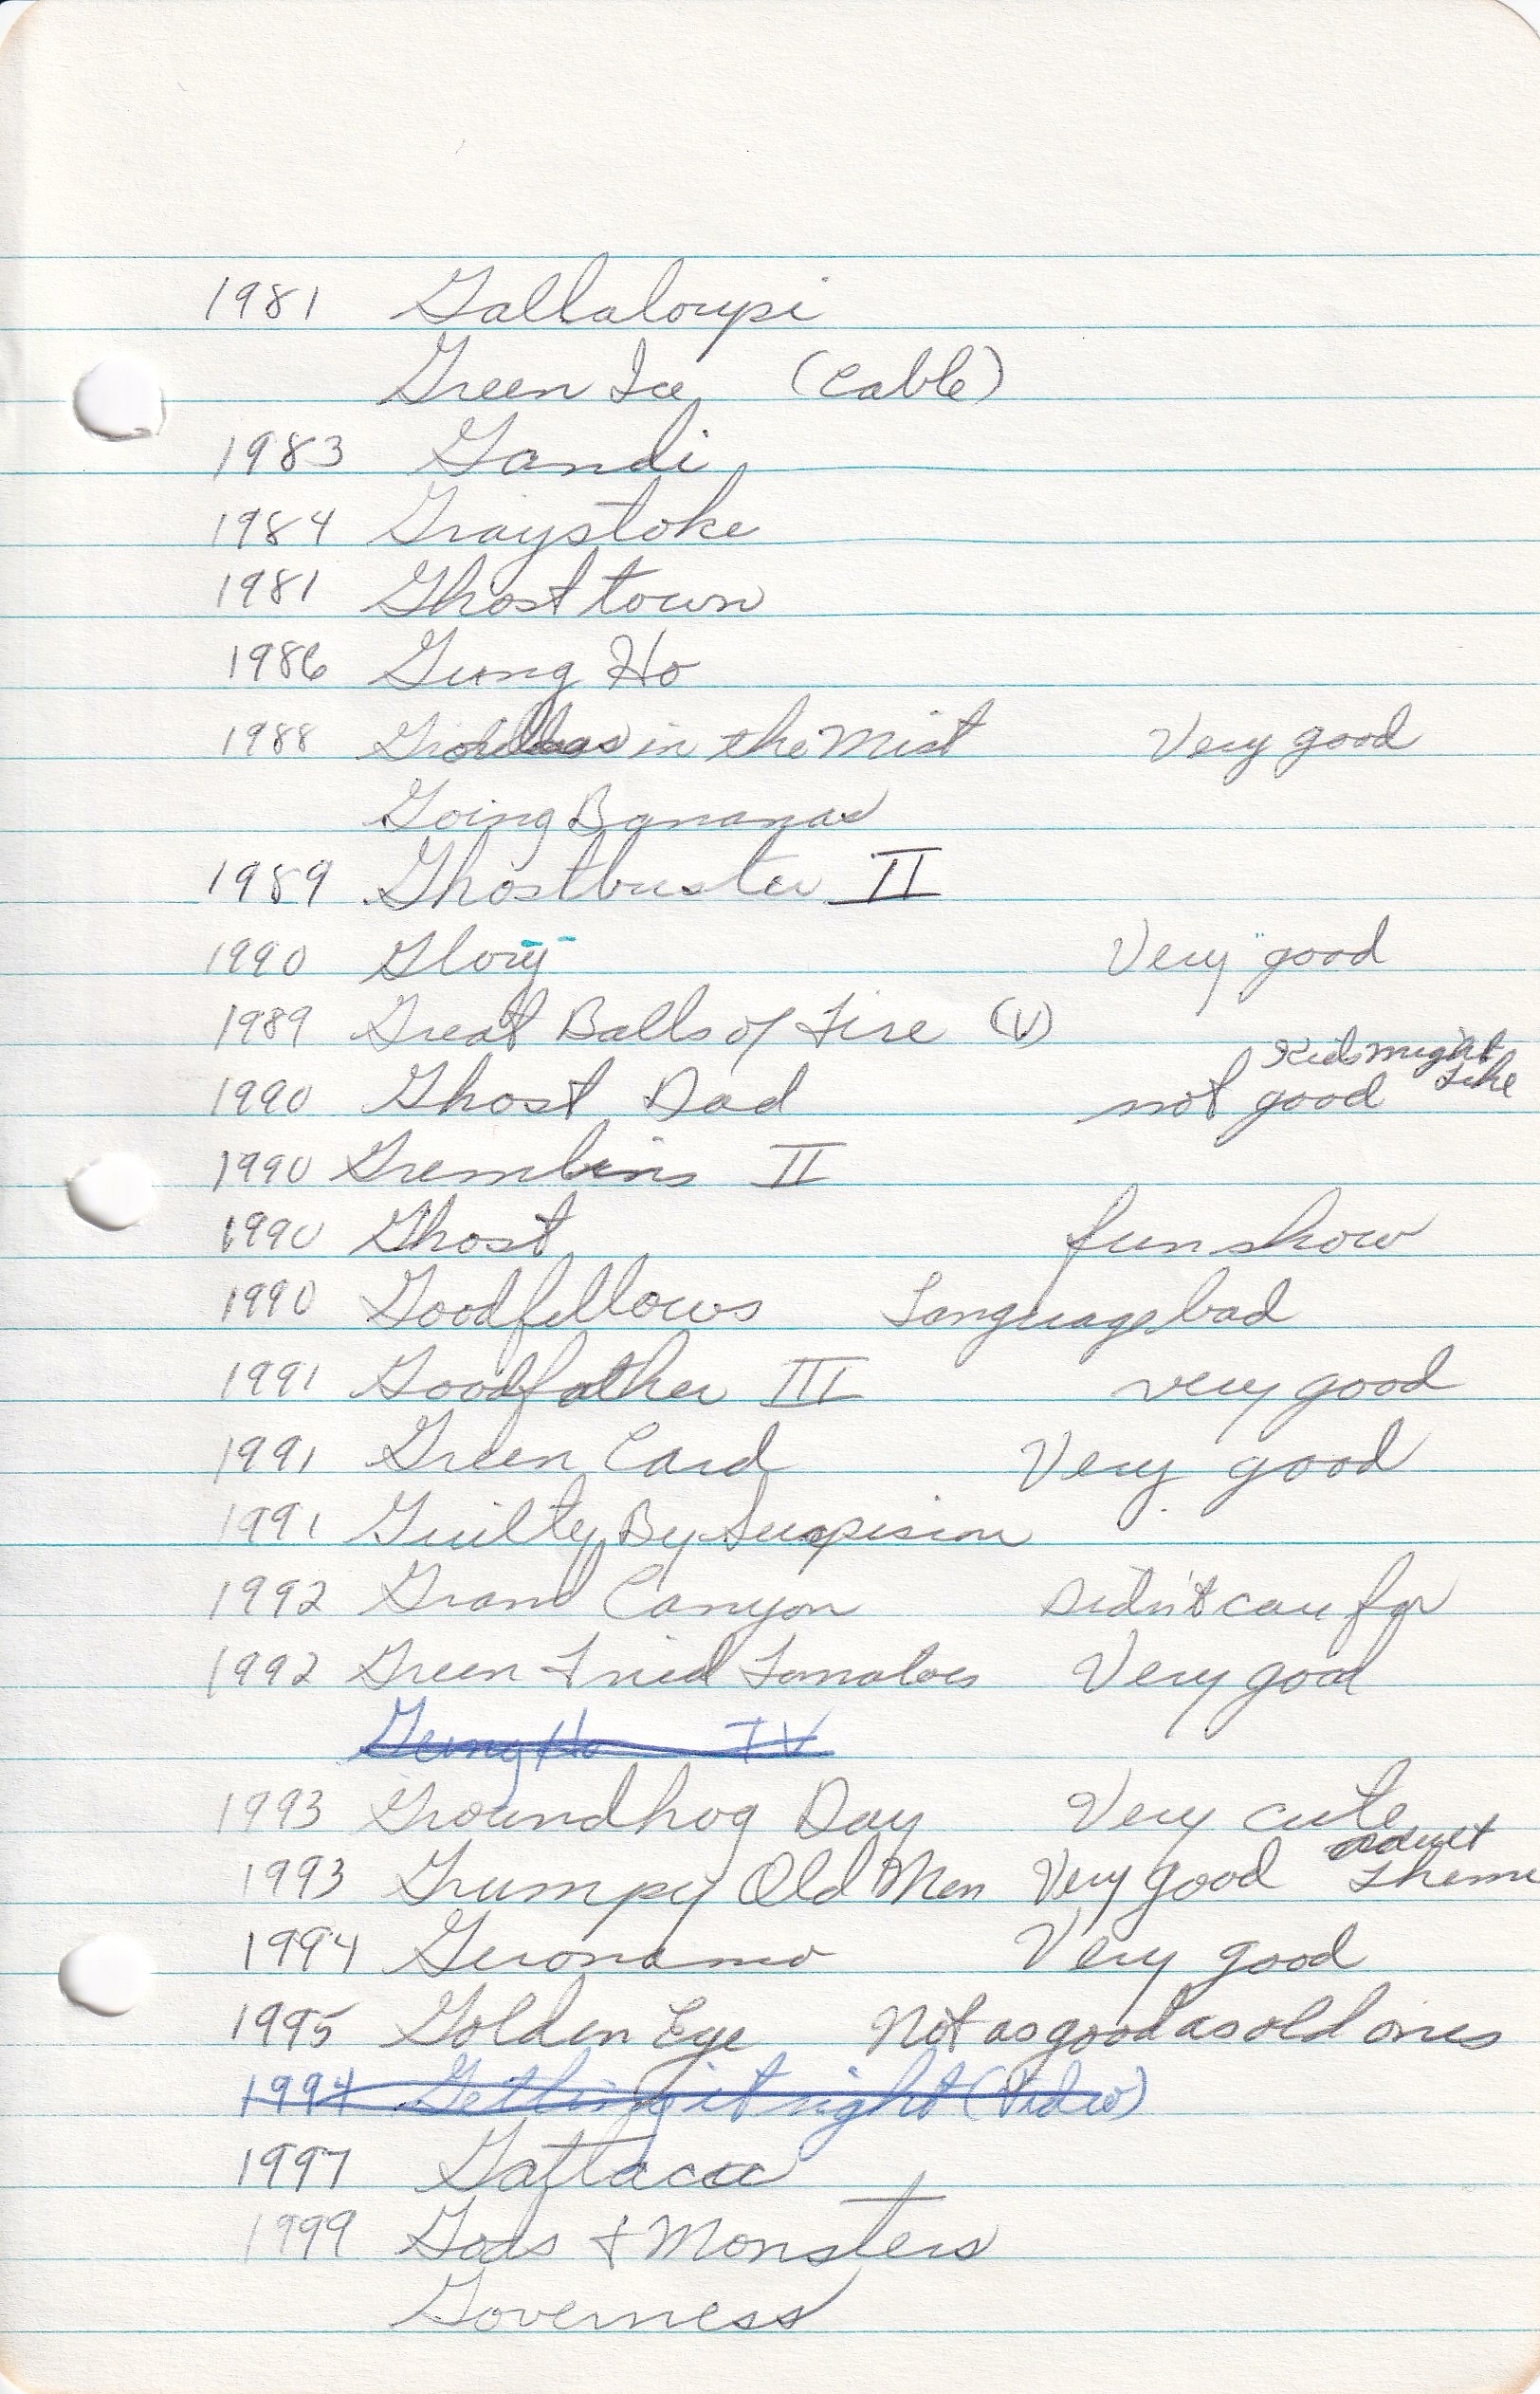 1981 Gallaloupi
Green Ice (Cable)
1983 Gandi
1984 Graystoke
1981 Ghost town
1986 Gung Ho
1988 in the Mist Very good
Going Bananas
1989 Ghostbuster II
1990 Glory Very good
1989 Great Balls of Fire (V)
Kids might
1990 Ghost Dad not good like
1990 Gremlins II
1990 Ghost fun show
1990 Goodfellows Language bad
1991 Goodfather III very good
1991 Green Card Very good
1991 Guilty By Suspision
1992 Grand Canyon Didn't care for
1992 Green Fried Tomatoes Very good
Gung Ho TV
1993 Groundhog Day Very cute
adult
1993 Grumpy Old Men Very good Theme
1994 Geronamo Very good
1995 Golden Eye Not as good as old ones
1994 Getting it right (Video)
1997 Gattaca
1999 Gods + Monsters
Governess